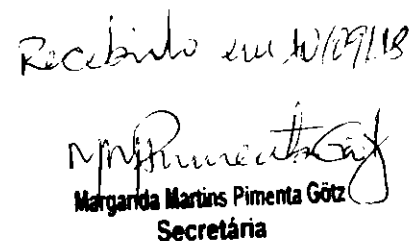 Recebido em 10/09/18
MMPimentaGötz
Margarida Martins Pimenta Götz
Secretária